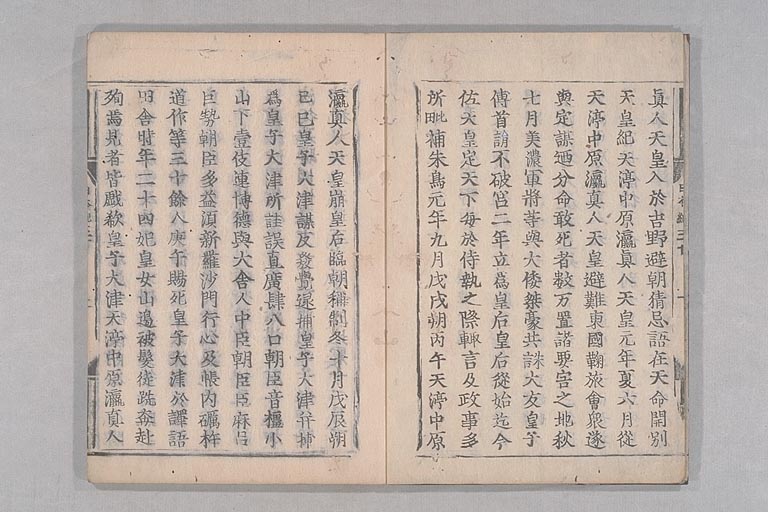 眞人天皇入於吉野避朝猜忌語在天命開別
天皇紀天渟中原瀛眞人天皇元年夏六月從
天渟中原瀛眞人天皇避難東國鞠旅會衆遂
與定謀廼分命敢死者數万置諸要害之地秋
七月美濃軍將等與大倭桀豪共誅大友皇子
傳首詣不破宮二年立爲皇后皇后從始迄今
佐天皇定天下毎於侍執之際輙言及政事多
所毗補朱鳥元年九月戊戌朔丙午天渟中原
瀛眞人天皇崩皇后臨朝稱制冬十月戊辰朔
己巳皇子大津謀反發覺逮捕皇子大津并捕
爲皇子大津所詿誤直廣肆八口朝臣音橿小
山下壹伎連博德與大舍人中臣朝臣臣麻呂
巨勢朝臣多益須新羅沙門行心及帳內礪杵
道作等三十餘人庚午賜死皇子大津於譯語
田舍時年二十四妃皇女山邊被髮徒跣奔赴
殉焉見者皆戱欷皇子大津天渟中原瀛眞人